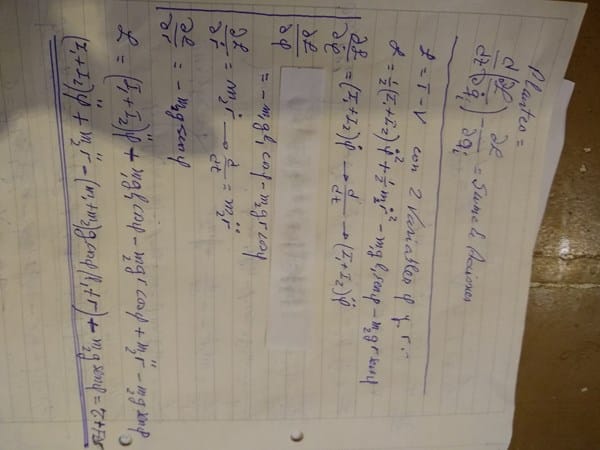 Planteo =
d/dt (∂L/∂q̇ᵢ) − ∂L/∂qᵢ = Suma de Acciones
L = T − V con 2 Variables φ y r
L = ½(I₁+I₂)φ̇² + ½m₂ṙ² − m₁gl₁senφ − m₂gr senφ
∂L/∂φ̇ = (I₁+I₂)φ̇ → d/dt → (I₁+I₂)φ̈
∂L/∂φ
= −m₁gl₁cosφ − m₂gr cosφ
∂L/∂ṙ = m₂ṙ → d/dt = m₂r̈
∂L/∂r = −m₂g senφ
L = (I₁+I₂)φ̈ + m₁gl₁cosφ − m₂gr cosφ + m₂r̈ − m₂g senφ
(I₁+I₂)φ̈ + m₂r̈ − (m₁+m₂)g cosφ(l₁+r) + m₂g senφ = τ+Fr